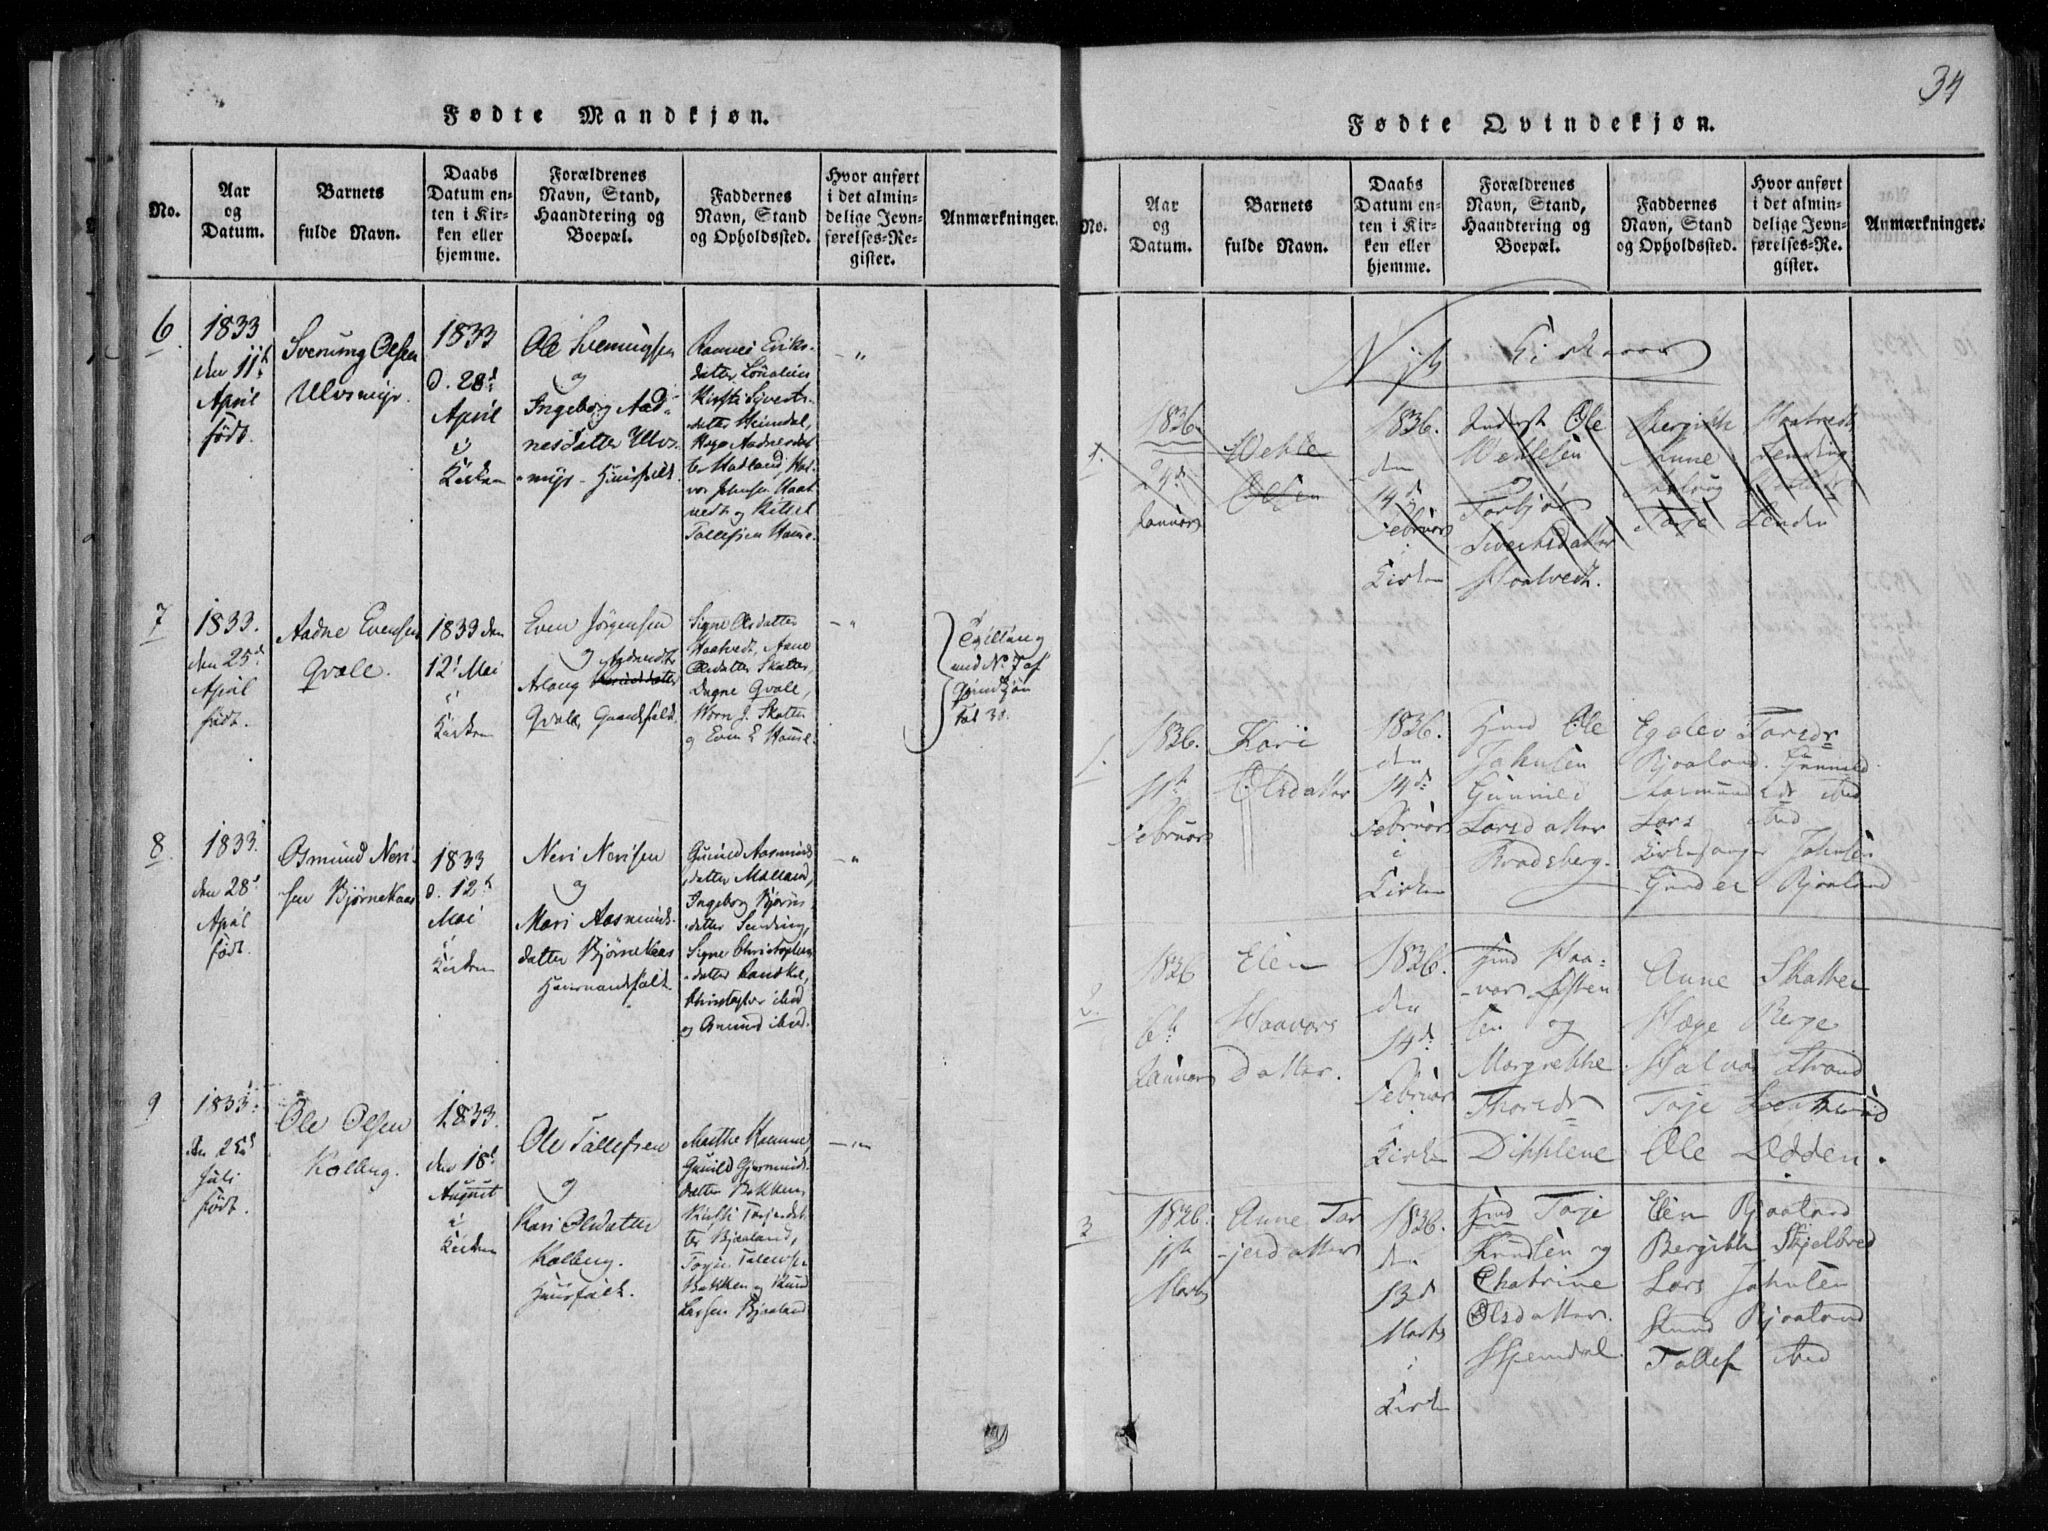 Fødte Mandkjøn.
No.
Aar
og
Datum.
Barnets
fulde Navn.
Daabs
Datum en-
ten i Kir-
ken eller
hjemme.
Forældrenes
Navn, Stand,
Haandtering og
Boepæl.
Faddernes
Navn, Stand
og Opholdssted.
Hvor anført
i det almin-
delige Jevn-
førelses-Re-
gister.
Anmærkninger.
6
1833
den 11t
April
født.
Sverung Olsen
Ulvsmyr.
1833
d. 28d
April
i
Kirken
Ole
og
Ingeborg Aad-
nesdatter Ulvs-
myr - Huusfolk.
Eriks-
datter
Kirsti Syverts-
datter Heimdal,
Johnsen Haat
vedt og Kittel
Tallefsen
7
1833.
den 25d
April
født.
Aadne Evensen
Qvale.
1833 den
12t Mai
i
Kirken
Even Jørgensen
og
Aslaug
Qvale, Gaardfolk.
Signe Olsdatter
Haatvedt, Anne
Olsdatter Skatter,
Dagne Qvale,
og Even
Tvilling
med No. 7 af
Qvindkjøn
Fol 30.
8
1833
den 28d
April
født.
Osmund Neri-
sen Bjørnekaas
1833
d. 12t
Mai
i
Kirken
Neri Nerisen
og
Mari Aasmunds-
datter Bjørnekaas
Gunild Aasmunds
datter
Ingeborg Bjørns
datter Lending,
Signe Christophers
datter
Christopher ibid
og Osmund ibid.
9
1833
den 25d
Juli
født.
Ole Olsen
Kolberg.
1833.
den 18d
August
i
Kirken
Ole Tallefsen
og
Kari Olsdatter
Kolberg.
Huusfolk.
Marthe
Gunild
datter Bakken,
Kirsti Torjesdat
ter Bjaaland,
Bakken og Knud
Larsen Bjaaland
34
Fødte Qvindekjøn.
No.
Aar
og
Datum.
Barnets
fulde Navn.
Daabs
Datum en-
ten i Kir-
ken eller
hjemme.
Forældrenes
Navn, Stand,
Haandtering og
Boepæl.
Faddernes
Navn, Stand
og Opholdssted.
Hvor anført
i det almin-
delige Jevn-
førelses-Re-
gister.
Anmærkninger.
Nyt Kirkeaar
1.
1836.
24d
Januar
Wehle
Olsen
1836.
den
14d
Februar
i
Kirken
Inderst Ole
Wehlesen
Torbjør
Sivertsdatter
Haatvedt.
Bergith Haatvedt
Anne Lending
Aslaug
Torje Lenden
1.
1836.
11t
Februar
Kari
Olsdatter
1836.
den
14d
Februar
i
Kirken
Huusmd Ole
Johnsen
Gunnild
Larsdatter
Bradsberg.
Egelev Torsdr
Bjaaland. Gunnild
Aasmundsdr ibid
Lars ibid
Kirkesanger Johnsen
Gunder Bjaaland
2.
1836
6t
Januar
Elen
Haavors
Datter.
1836.
den
14d
Februar
i
Kirken
Hmd Haa-
vor Østen
sen og
Margrethe
Thorsdr
Dipplene
Anne Skatter
Hæge Berge
Halvor Strand
Torje
Ole Ødden.
3
1836.
1ste
Marts
Anne Tor
jesdatter
1836.
den
13d
Marts
i
Kirken
Hmd Torje
Knudsen og
Chatrine
Olsdatter.
Hjemdal.
Elen Bjaaland
Bergith Skjelbred
Lars Johnsen
Knud Bjaaland
Tallef ibid